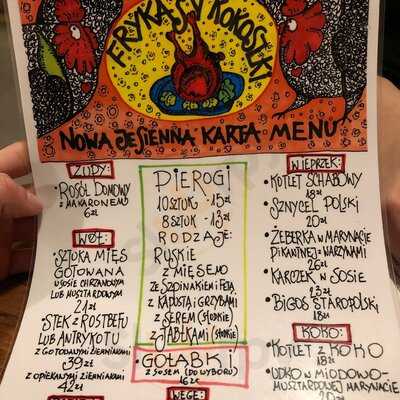 FRYKASY KOKOSZKI
NOWA JESIENNA KARTA MENU
ZUPY:
• ROSÓŁ DOMOWY
Z MAKARONEM
6 zł
WÓŁ:
• SZTUKA MIĘS
GOTOWANA
W SOSIE CHRZANOWYM
LUB MUSZTARDOWYM
21 zł
• STEK Z ROSTBEFU
LUB ANTRYKOTU
Z GOTOWANYMI ZIEMNIAKAMI
39 zł
Z OPIEKANYMI ZIEMNIAKAMI
42 zł
PIEROGI
10 SZTUK - 15 zł
8 SZTUK - 13 zł
RODZAJE:
RUSKIE
Z MIĘSEM
ZE SZPINAKIEM I FETĄ
Z KAPUSTĄ I GRZYBAMI
Z SEREM (SŁODKIE)
Z JABŁKAMI (SŁODKIE)
GOŁĄBKI
Z SOSEM (DO WYBORU)
16 zł
WEGE:
WIEPRZEK:
• KOTLET SCHABOWY
18 zł
• SZNYCEL POLSKI
20 zł
• ŻEBERKA W MARYNACIE
PIKANTNEJ + WARZYWAMI
26 zł
• KARCZEK W SOSIE
23 zł
• BIGOS STAROPOLSKI
18 zł
KOKO:
• KOTLET Z KOKO
18 zł
• UDKO W MIODOWO-
MUSZTARDOWEJ MARYNACIE
20 zł